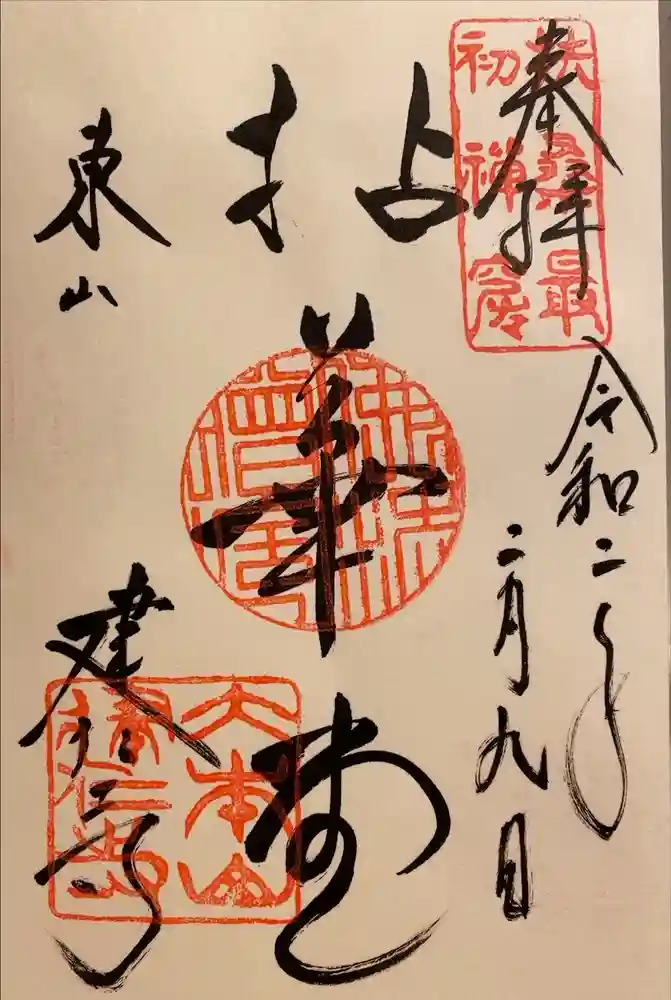 奉拝
令和二年
二月九日
拈華堂
東山
建仁寺
扶桑最
初禅窟
大本山
建仁寺